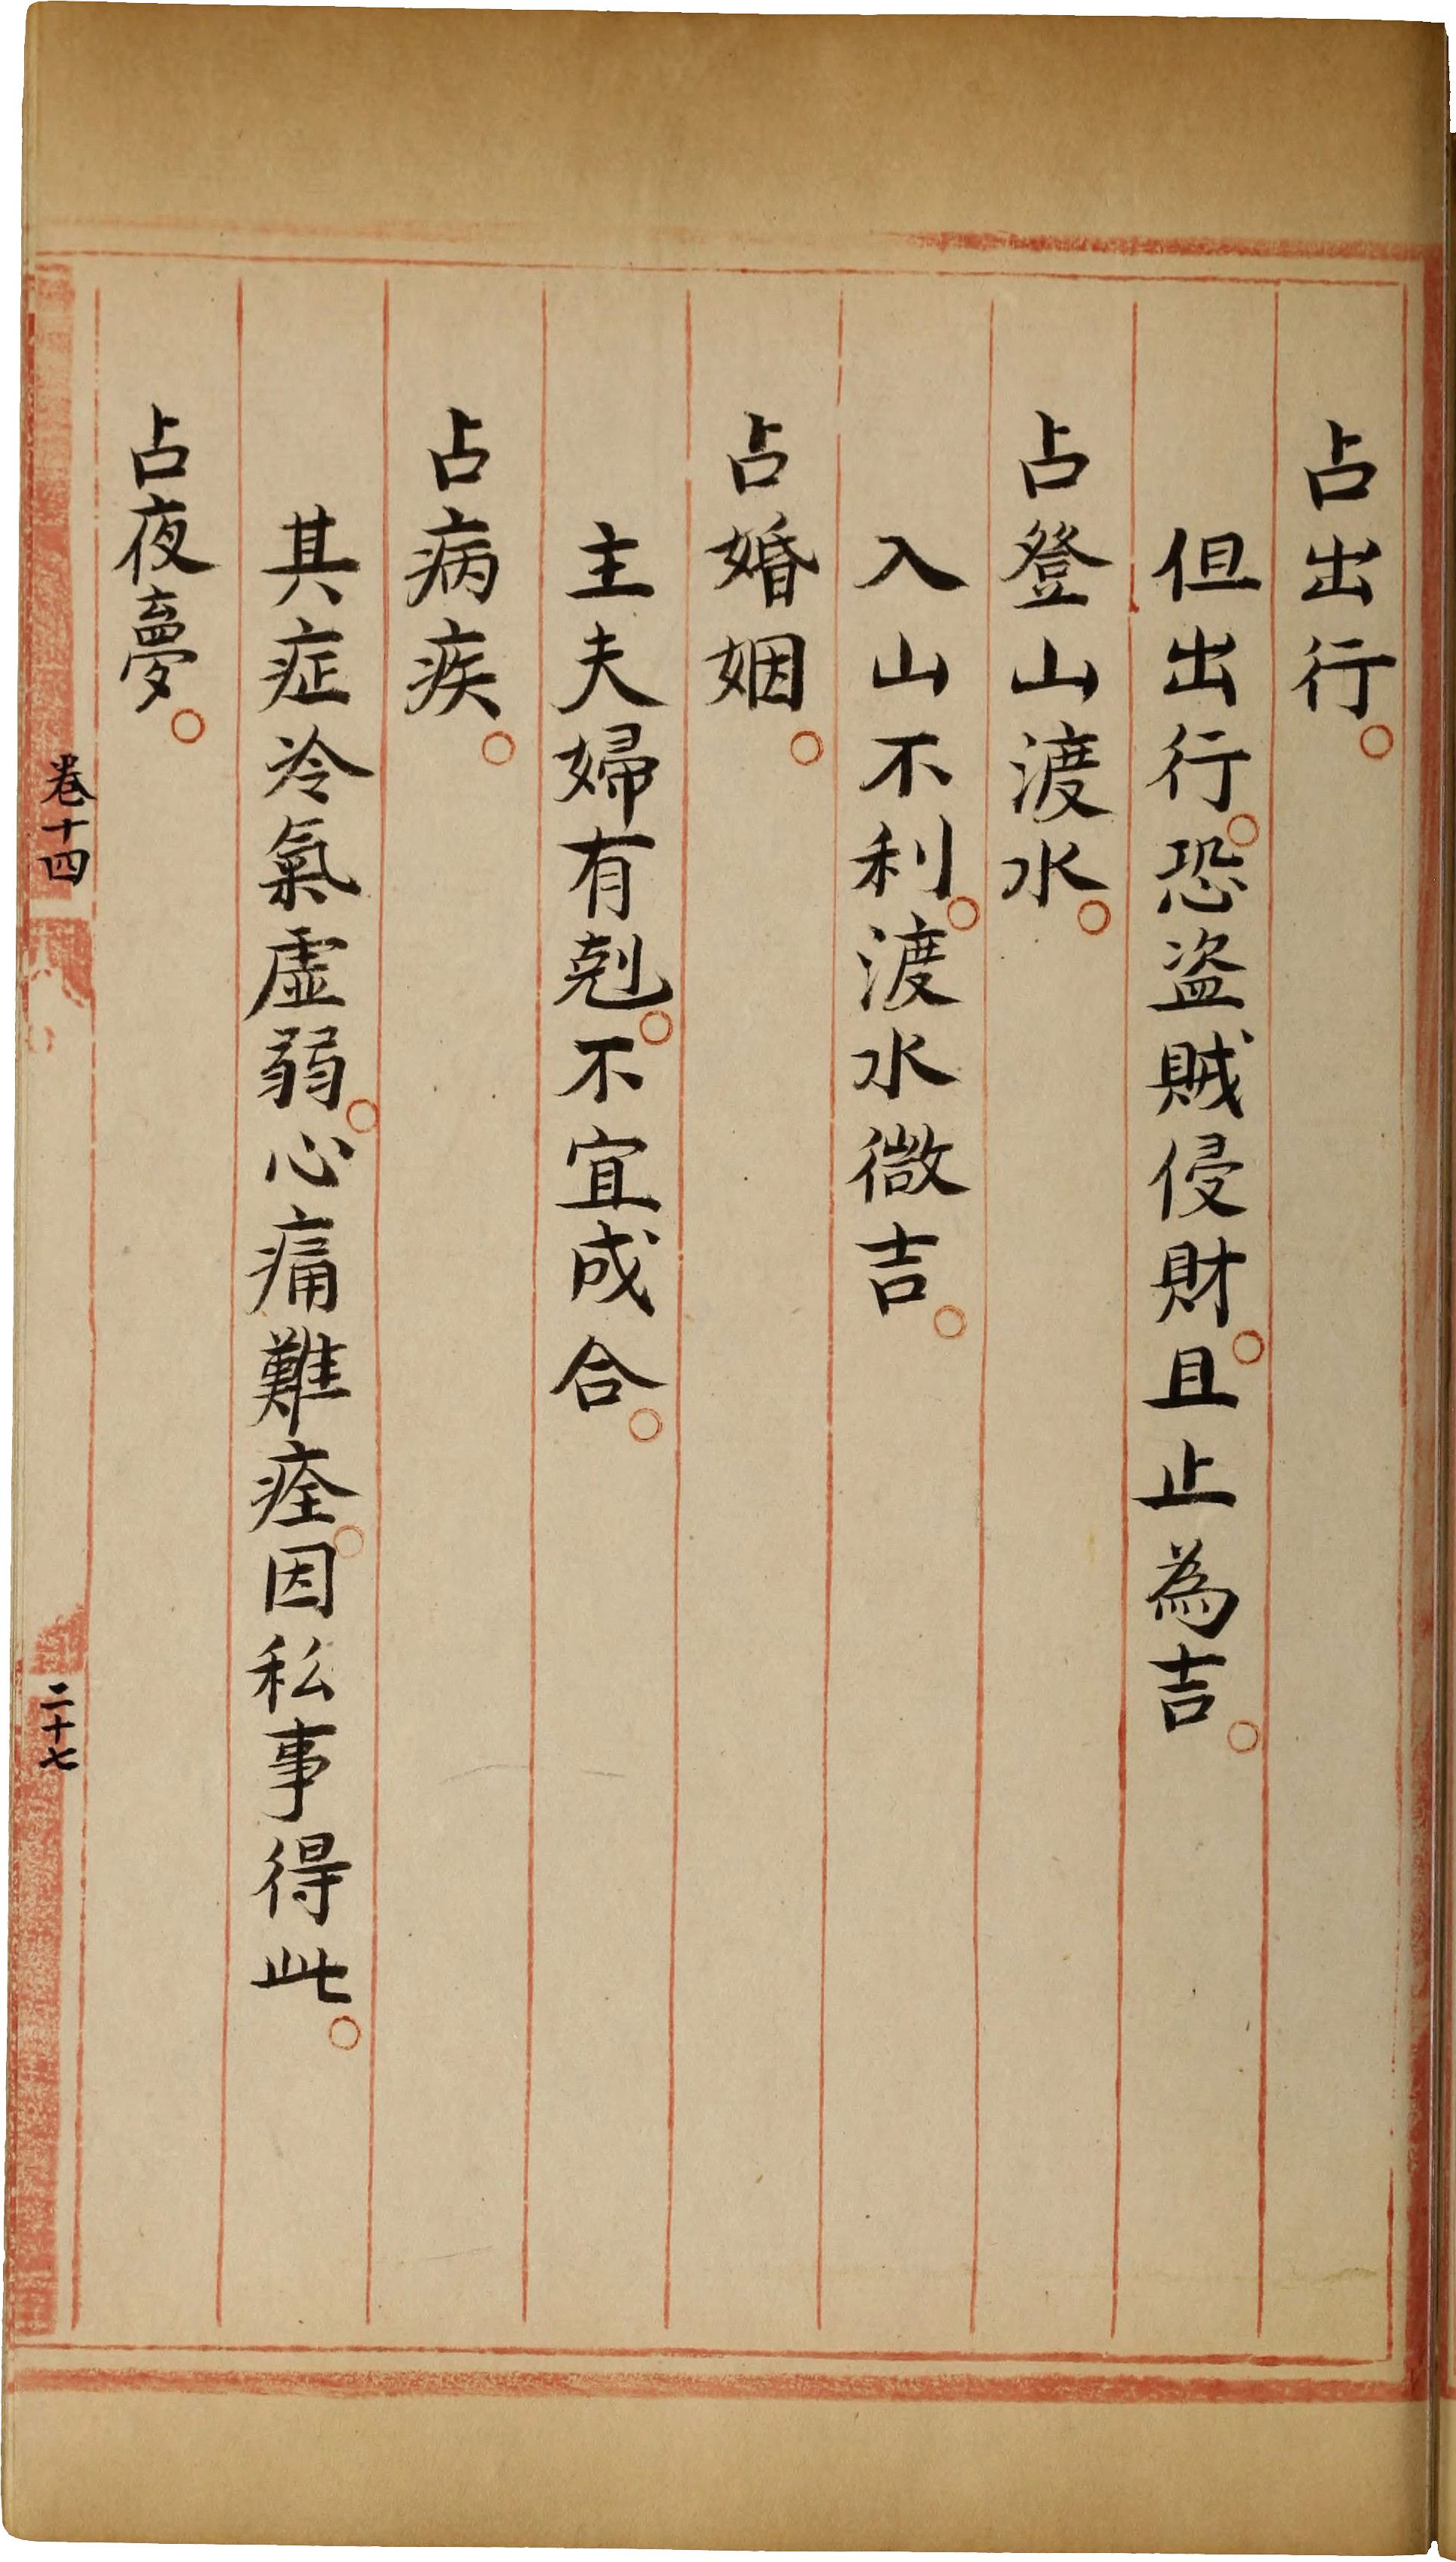 占出行。
但出行。恐盗賊侵財。且止為吉。
占登山渡水。
入山不利。渡水微吉。
占婚姻。
主夫婦有剋。不宜成合。
占病疾。
其症冷氣虛弱。心痛難痊。因私事得此。
占夜夢。
卷十四
二十七